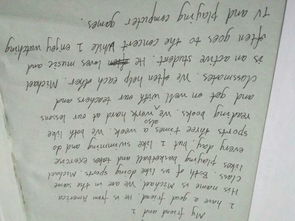 My friend and I
I have a good friend
His name is Michael. He is from America
class. Both of us like doing sports. Michael
likes playing basketball and takes exercise
every day, but I like swimming and do
sports three times a week. We both like
also
reading books. We work hard at our lessons
and get on well with our teachers and
classmates. We often help each other. Michael
is an active student. He loves music and
often goes to the concert while I enjoy watching
TV and playing computer games.